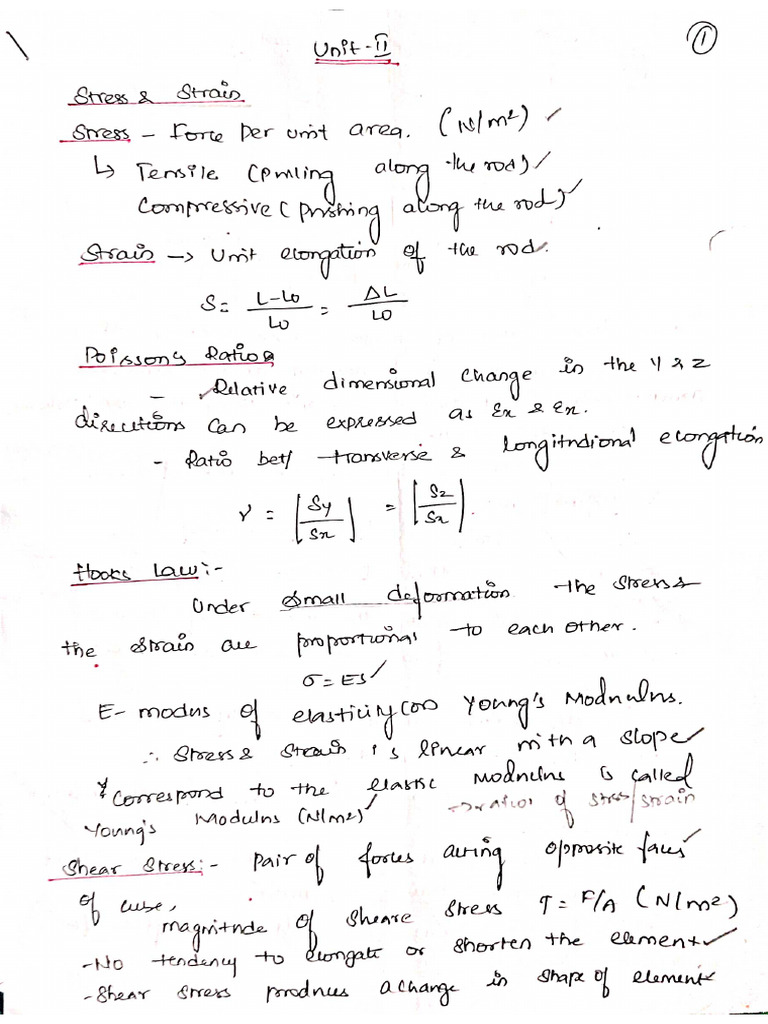 Unit-II
①
Stress & Strain
Stress - Force per unit area. (N/m²)
↳ Tensile (pulling along the rod)
Compressive (pushing along the rod)
Strain → Unit elongation of the rod.
S = L-L0/L0 = ΔL/L0
Poissons Ratio
- Relative dimensional change in the Y & Z
directions can be expressed as Ɛx & Ɛx.
- Ratio bet/ transverse & longitudional elongation
γ = |Sy/Sx| = |Sz/Sx|.
Hooks Law:-
Under small deformation the stress &
the strain are proportional to each other.
σ = ES
E- modus of elasticity (or) Young's Modulus.
∴ Stress & Strain is linear with a slope
& correspond to the elastic modulus is called
Young's Modulus (N/m²) → ration of stress/strain
Shear Stress:- Pair of forces acting opposite faces
of cube,
magnitude of sheare stress τ = F/A (N/m²)
- No tendency to elongate or shorten the element
- Shear stress produces a change in shape of element